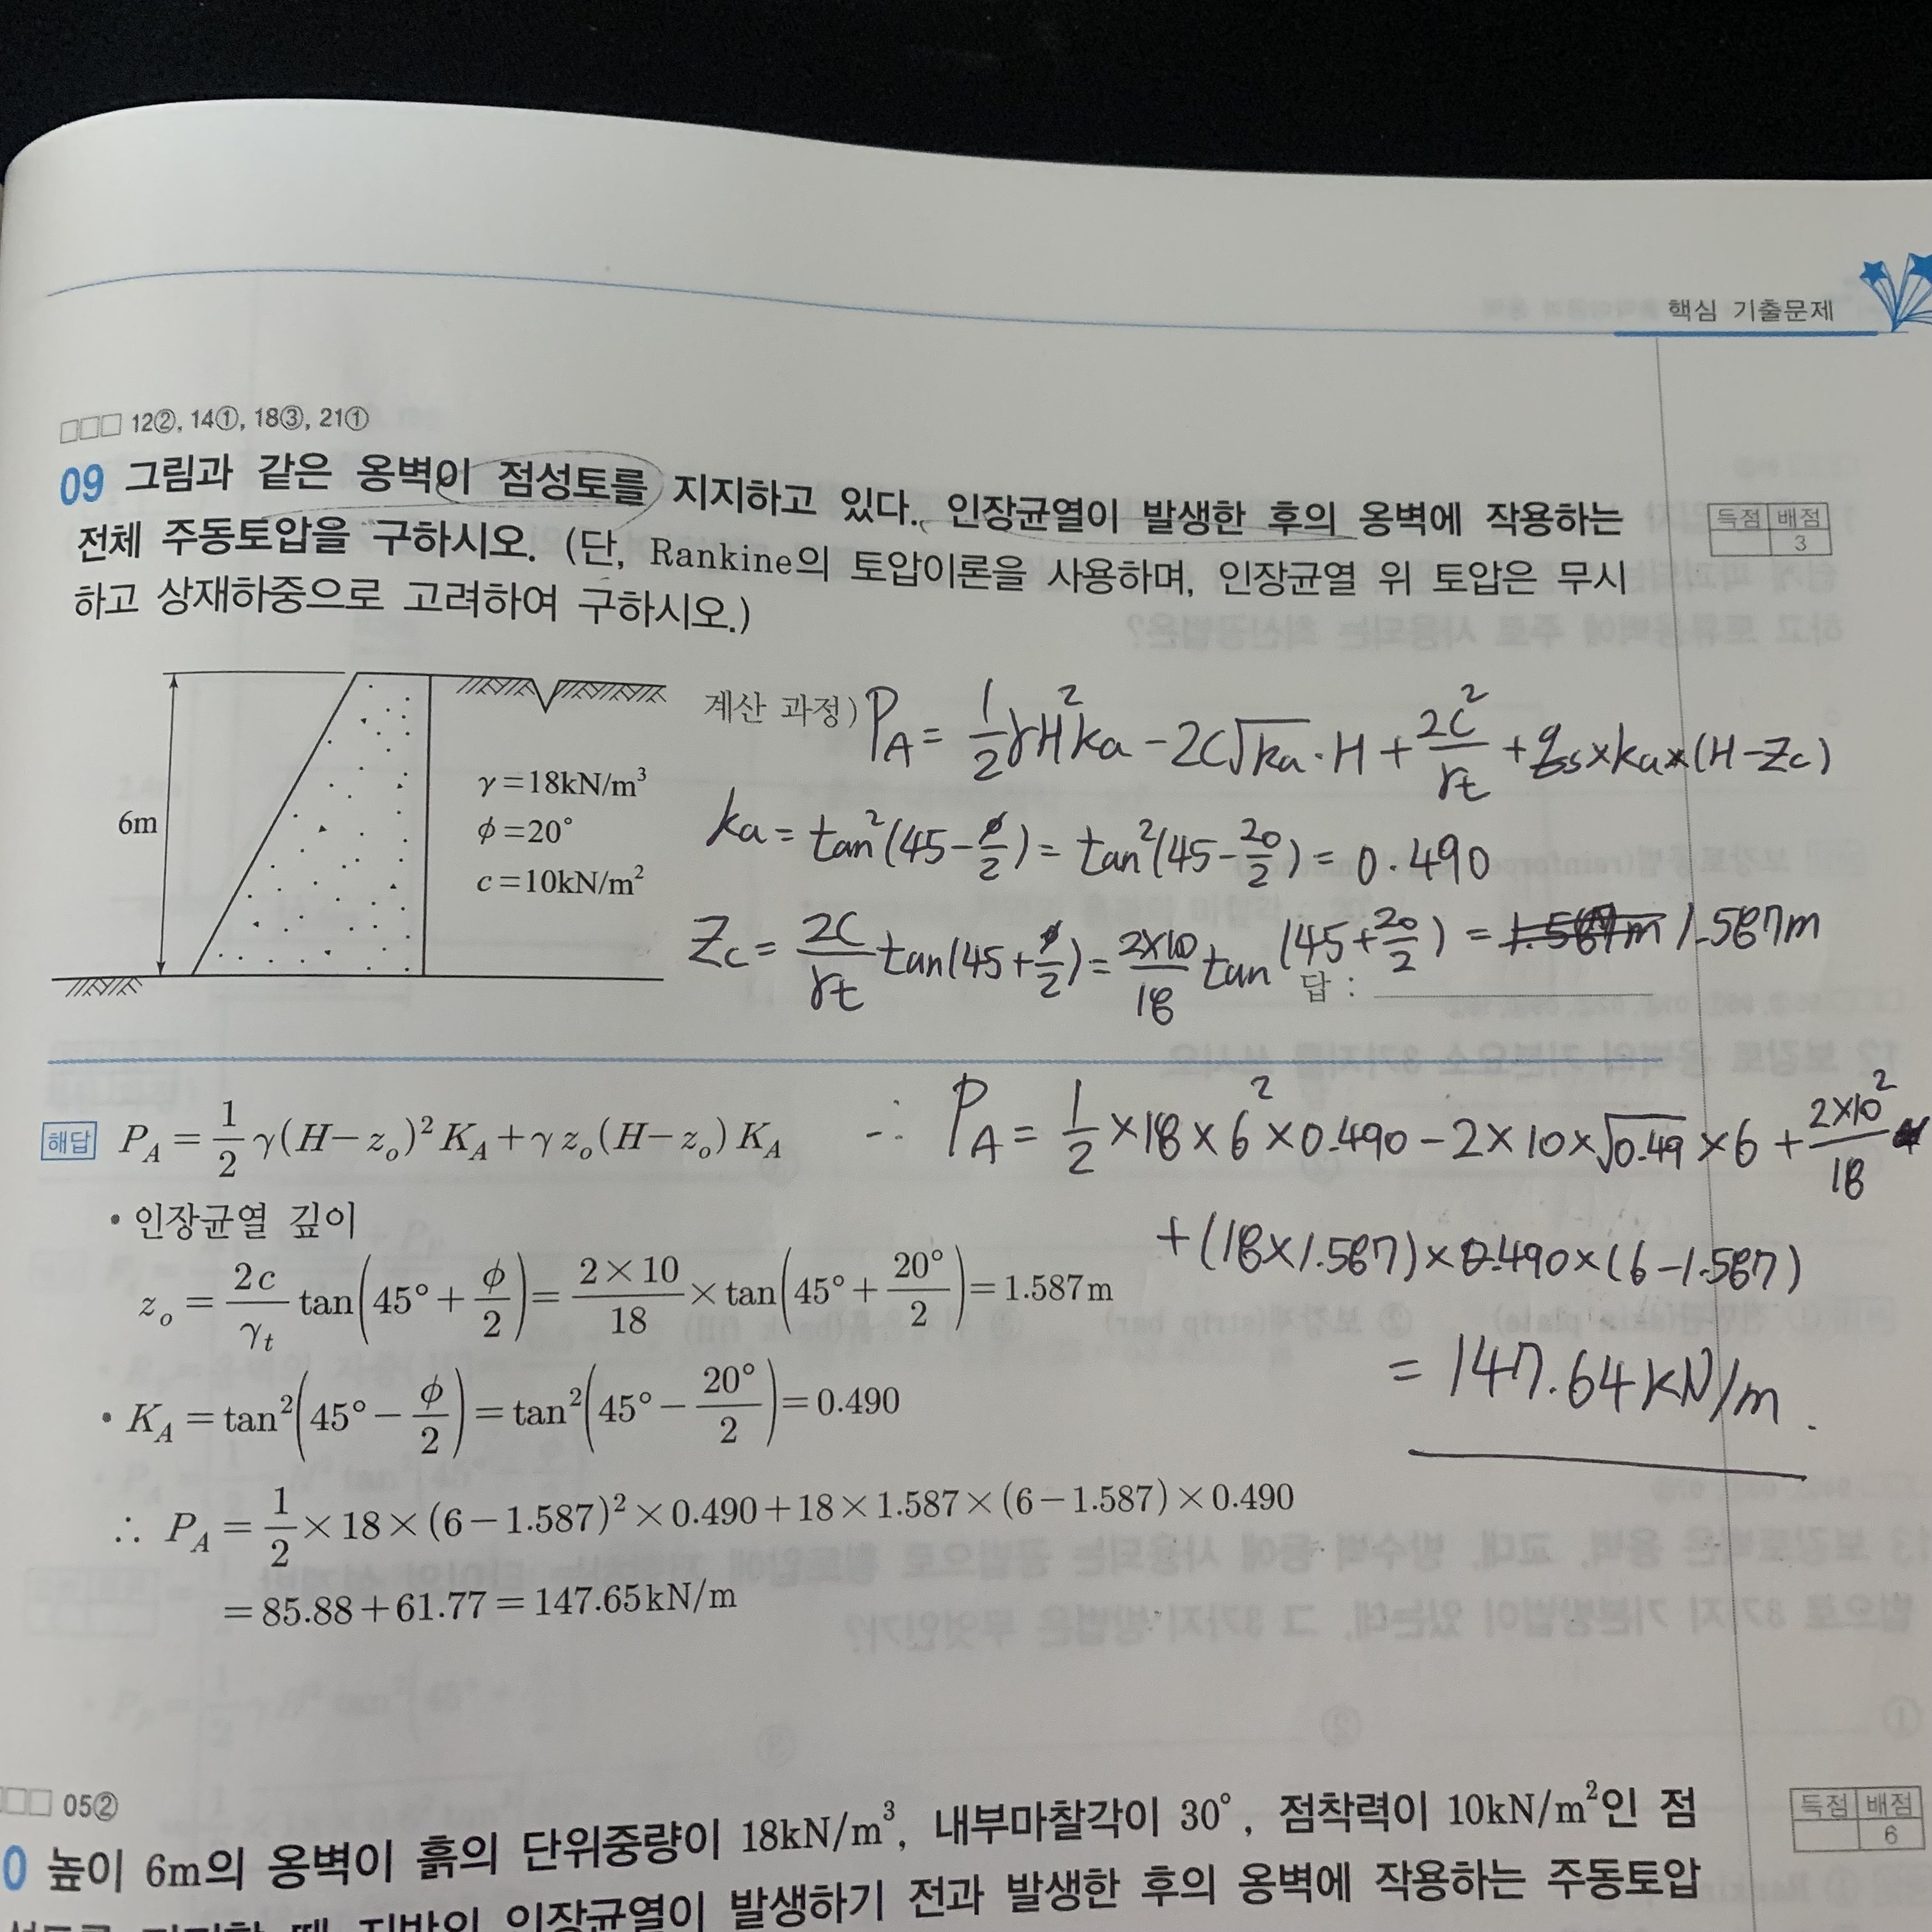 핵심 기출문제
□□□ 12②, 14①, 18③, 21①
09 그림과 같은 옹벽이 점성토를 지지하고 있다. 인장균열이 발생한 후의 옹벽에 작용하는
전체 주동토압을 구하시오. (단, Rankine의 토압이론을 사용하며, 인장균열 위 토압은 무시
하고 상재하중으로 고려하여 구하시오.)
득점 배점
3
6m
γ=18kN/m³
ϕ=20°
c=10kN/m²
계산 과정) P_A = 1/2 γH²ka - 2C√ka · H + 2C²/rt + qs×ka×(H-Zc)
ka = tan²(45-ϕ/2) = tan²(45-20/2) = 0.490
Zc = 2C/rt tan(45+ϕ/2) = 2×10/18 tan(45+20/2) = 1.587m
답 :
해답 P_A = 1/2 γ(H-z_o)² K_A + γ z_o (H-z_o) K_A
• 인장균열 깊이
z_o = 2c/γ_t tan(45°+ϕ/2) = 2×10/18 × tan(45°+20°/2) = 1.587m
• K_A = tan²(45°-ϕ/2) = tan²(45°-20°/2) = 0.490
∴ P_A = 1/2 ×18×(6-1.587)²×0.490+18×1.587×(6-1.587)×0.490
=85.88+61.77=147.65kN/m
∴ P_A = 1/2 ×18×6²×0.490-2×10×√0.49×6+ 2×10²/18
+(18×1.587)×0.490×(6-1.587)
= 147.64kN/m.
□□□ 05②
0 높이 6m의 옹벽이 흙의 단위중량이 18kN/m³, 내부마찰각이 30°, 점착력이 10kN/m²인 점
인장균열이 발생하기 전과 발생한 후의 옹벽에 작용하는 주동토압
득점 배점
6